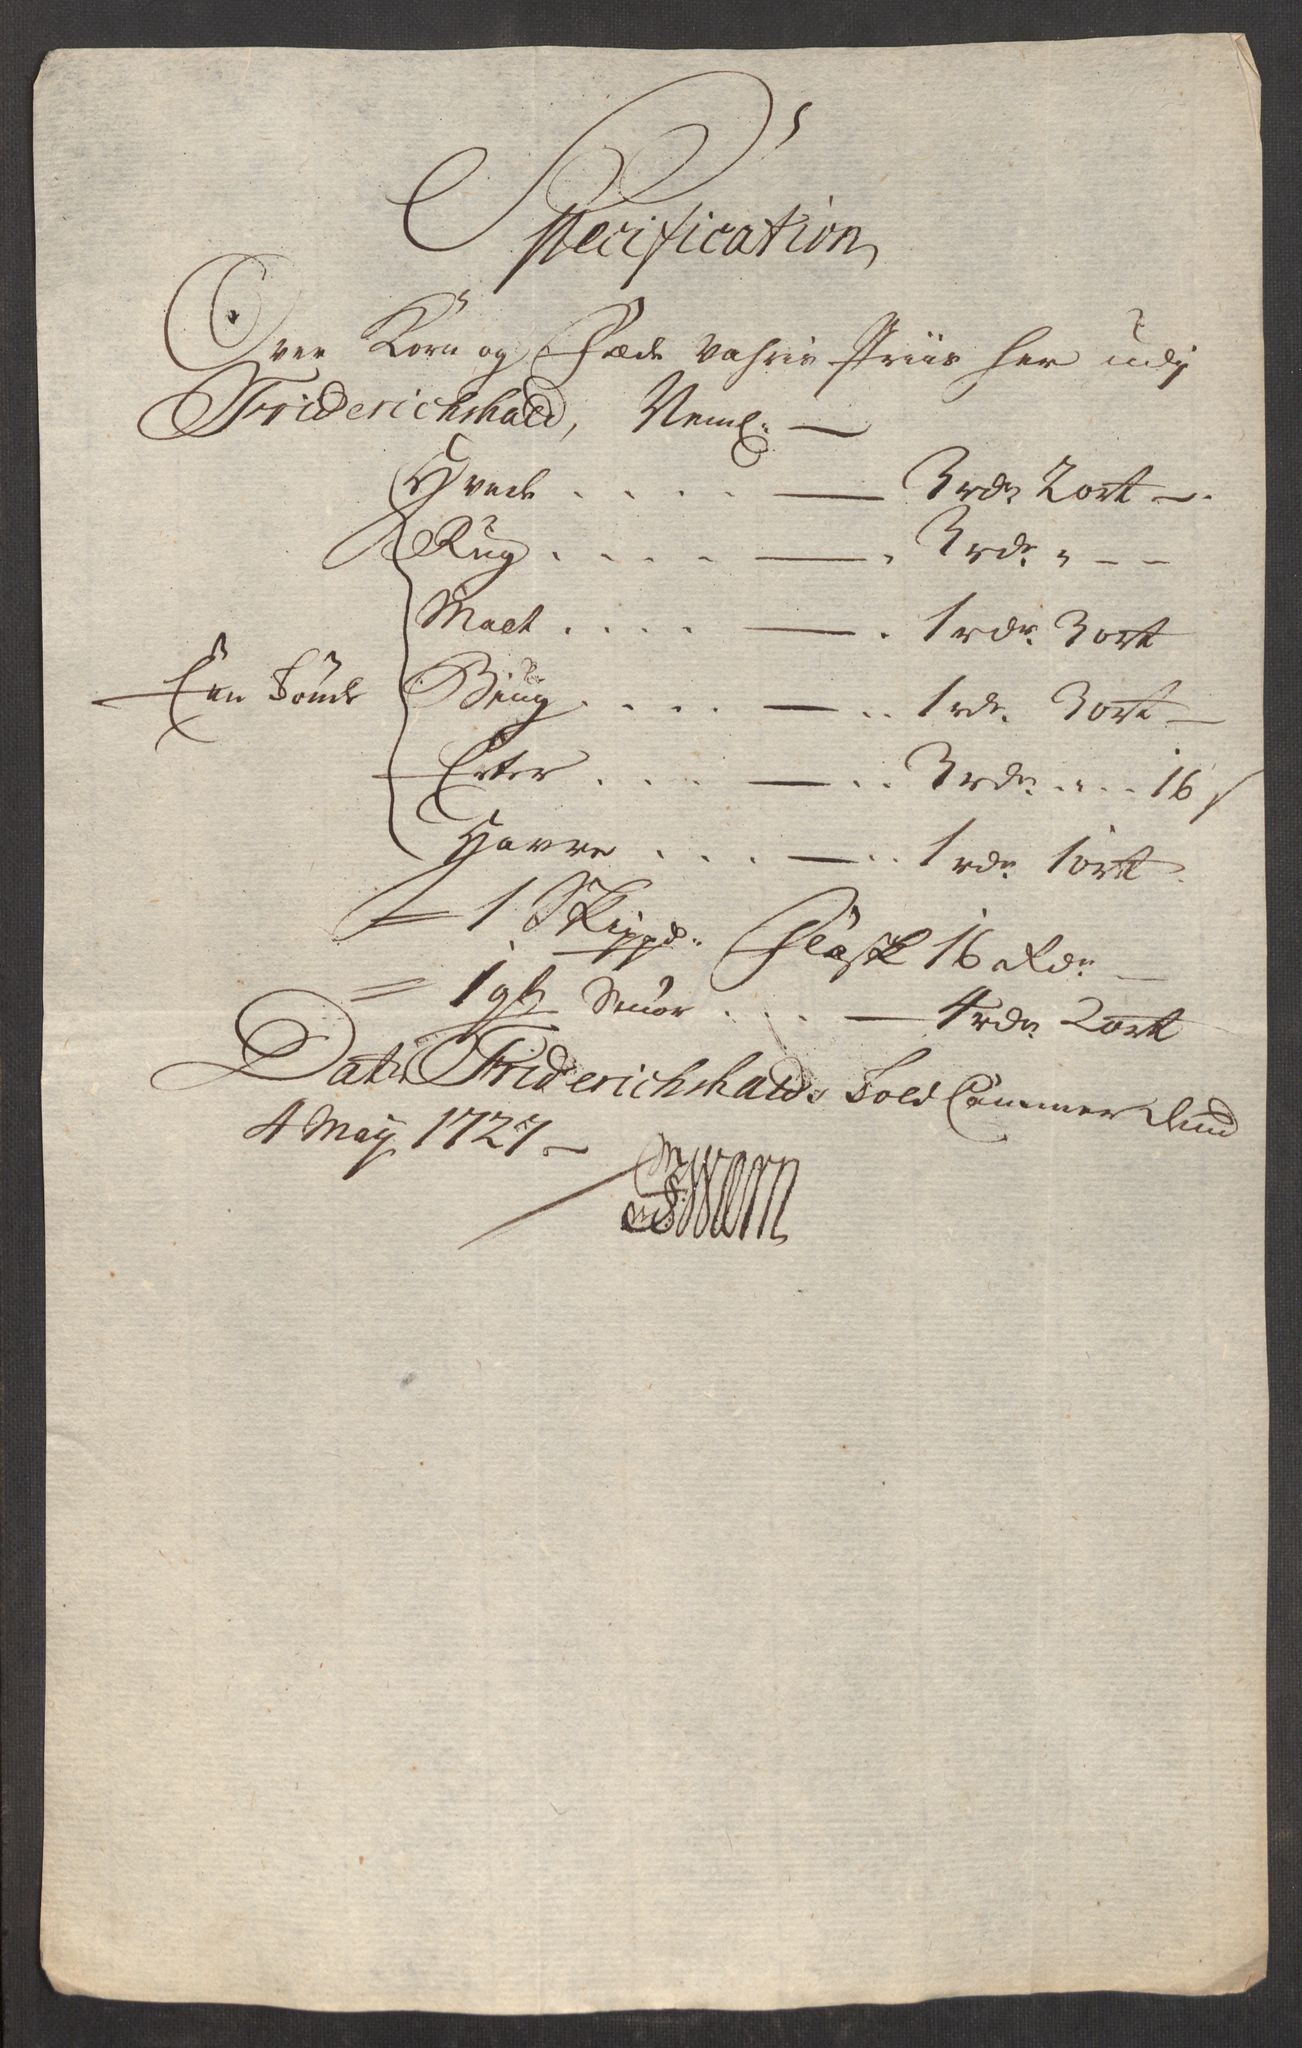 Specification
Over Korn og Fæde Vahris Priis her udj
Friderichshald, Neml:
Hvede . . . . — 3 rdr 2 ort —
Rug . . . . — 3 rdr „ - -
Malt . . . . — 1 rdr 3 ort
Een Tønde Biug . . . . — 1 rdr 3 ort —
Erter . . . . — 3 rdr „ 16 s
Havre . . . — 1 rdr 1 ort
= 1 Skippd: Flæsk 16 Rdr —
= 1 Smør . . . — 4 rdr 2 ort
Dat. Friderichshalds Told Cammer
4 Maij 1727 —